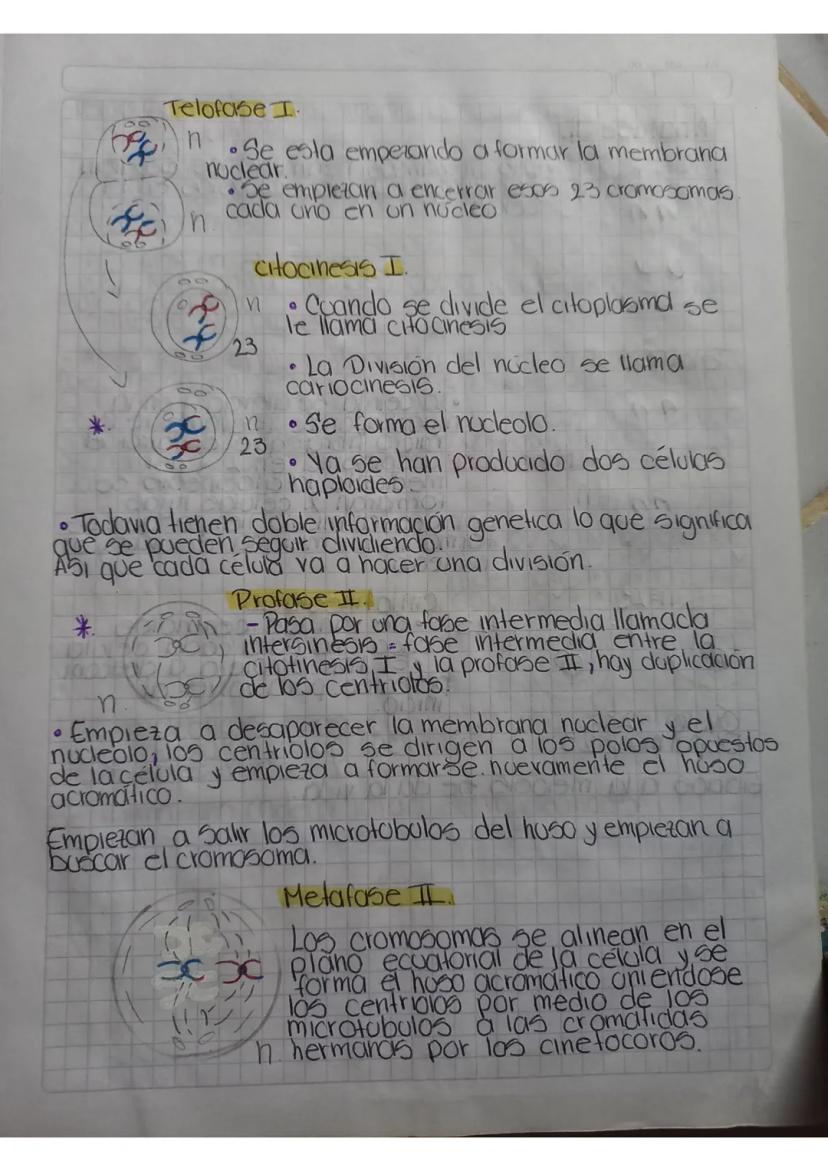 Telofase I.
n
• Se esta empezando a formar la membrana
nuclear.
• Se empiezan a encerrar esos 23 cromosomas
cada uno en un núcleo
n
Citocinesis I.
n
• Cuando se divide el citoplasma se
le llama citocinesis
23
• La División del núcleo se llama
cariocinesis.
*.
n
• Se forma el nucleolo.
23
• Ya se han producido dos células
haploides.
• Todavia tienen doble información genetica lo que significa
que se pueden seguir dividiendo.
Asi que cada celula va a hacer una división.
Profase II.
*.
- Pasa por una fase intermedia llamada
intersinesis = fase intermedia entre la
citotinesis I y la profase II, hay duplicación
de los centriolos.
n.
• Empieza a desaparecer la membrana nuclear y el
nucleolo, los centriolos se dirigen a los polos opuestos
de la celula y empieza a formarse nuevamente el huso
acromático.
Empiezan a salir los microtubulos del huso y empiezan a
buscar el cromosoma.
Metafase II.
Los cromosomas se alinean en el
plano ecuatorial de la celula y se
forma el huso acromatico uniendose
los centriolos por medio de los
microtubulos a las cromatidas
n. hermanas por los cinetocoros.